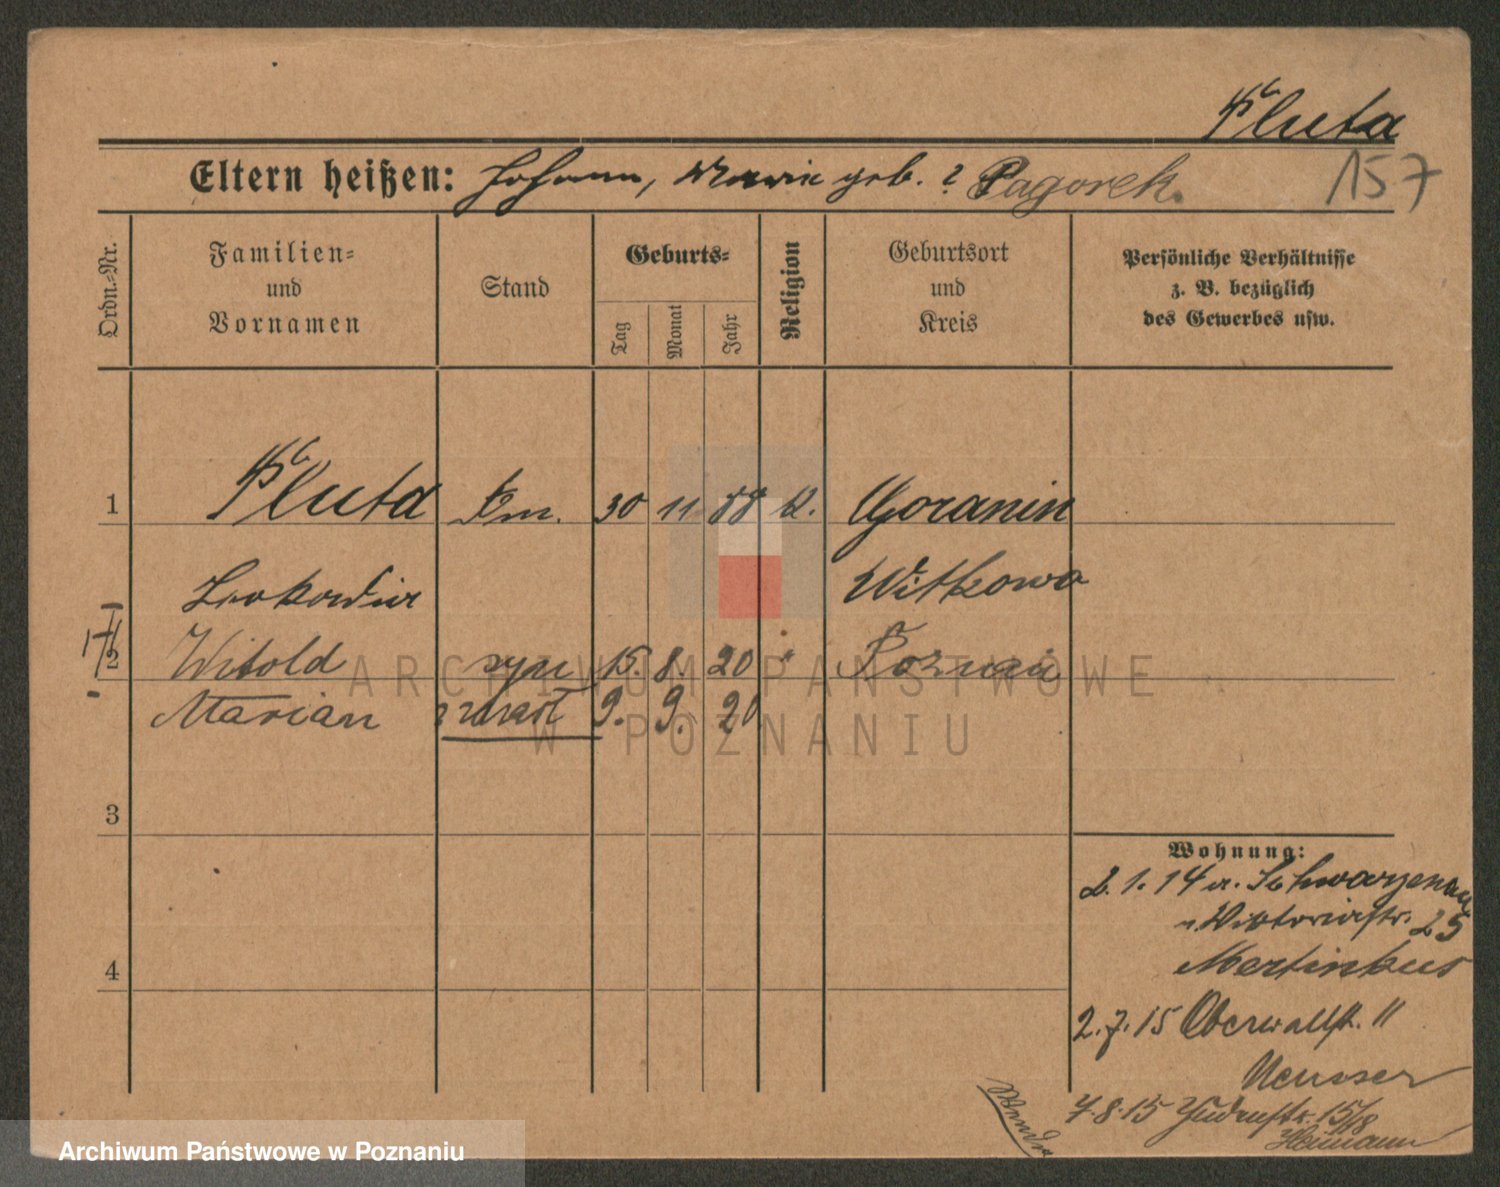 Pluta
Eltern heißen: Johann, Marie geb. ? Pagorek.
157
Ordn.-Nr.
Familien-
und
Vornamen
Stand
Geburts-
Tag
Monat
Jahr
Religion
Geburtsort
und
Kreis
Persönliche Verhältnisse
z. B. bezüglich
des Gewerbes usw.
1 Pluta 30 11 88 k. Goranin
Leokadia Witkowo
2 Witold syn 15. 8. 20 " Poznań
Marian zmarł 9. 9. 20
3
4
Wohnung:
2. 1. 14 a. Schwarzenau
n. Viktoriastr. 25
Martinkus
2. 7. 15 Oberwallst. 11
7. 8. 15 Judenstr. 15/18
Heimann
Wende
ARCHIWUM PAŃSTWOWE
W POZNANIU
Archiwum Państwowe w Poznaniu